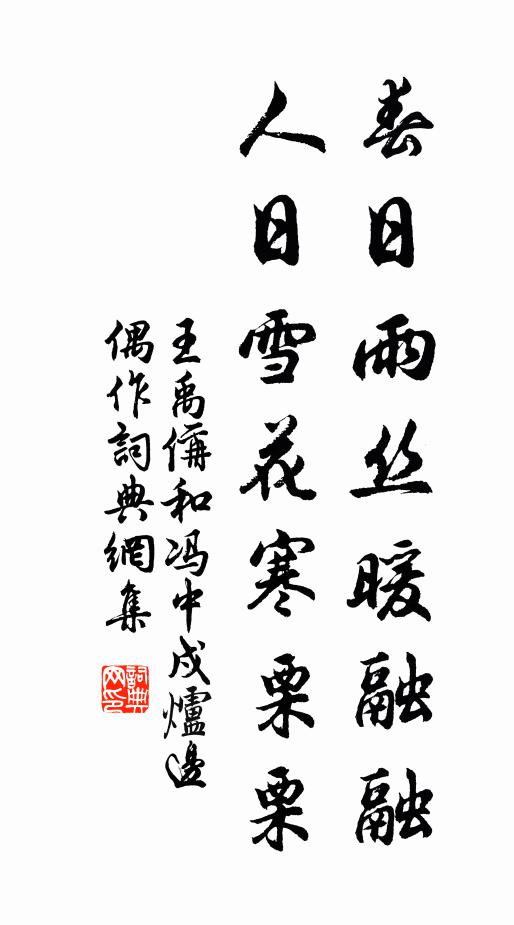 春日雨丝暖融融
人日雪花寒栗栗
王禹偁和冯中戍爐邊
偶作詞典網集
詞典
网印